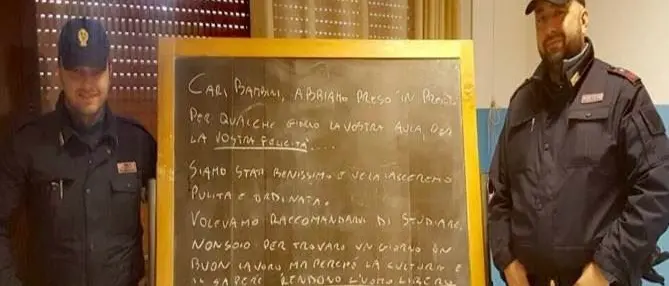 CARI BAMBINI, ABBIAMO PRESO IN
PER QUALCHE GIORNO LA VOSTRA AULA, DA
LA VOSTRA POLIZIA....
SIAMO STATI BENISSIMO E VE LA LASCEREMO
PULITA E ORDINATA.
VOLEVAMO RACCOMANDARVI DI STUDIARE,
NON SOLO PER TROVARE UN GIORNO UN
BUON LAVORO MA PERCHÉ LA CULTURA E
IL SAPERE RENDONO L'UOMO LIBERO